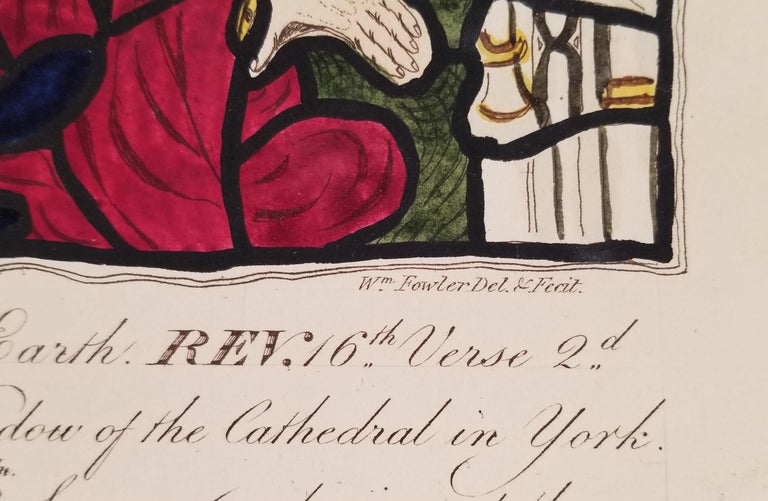 Wm. Fowler Del. & Fecit.
Earth. REV. 16th Verse 2d
dow of the Cathedral in York.